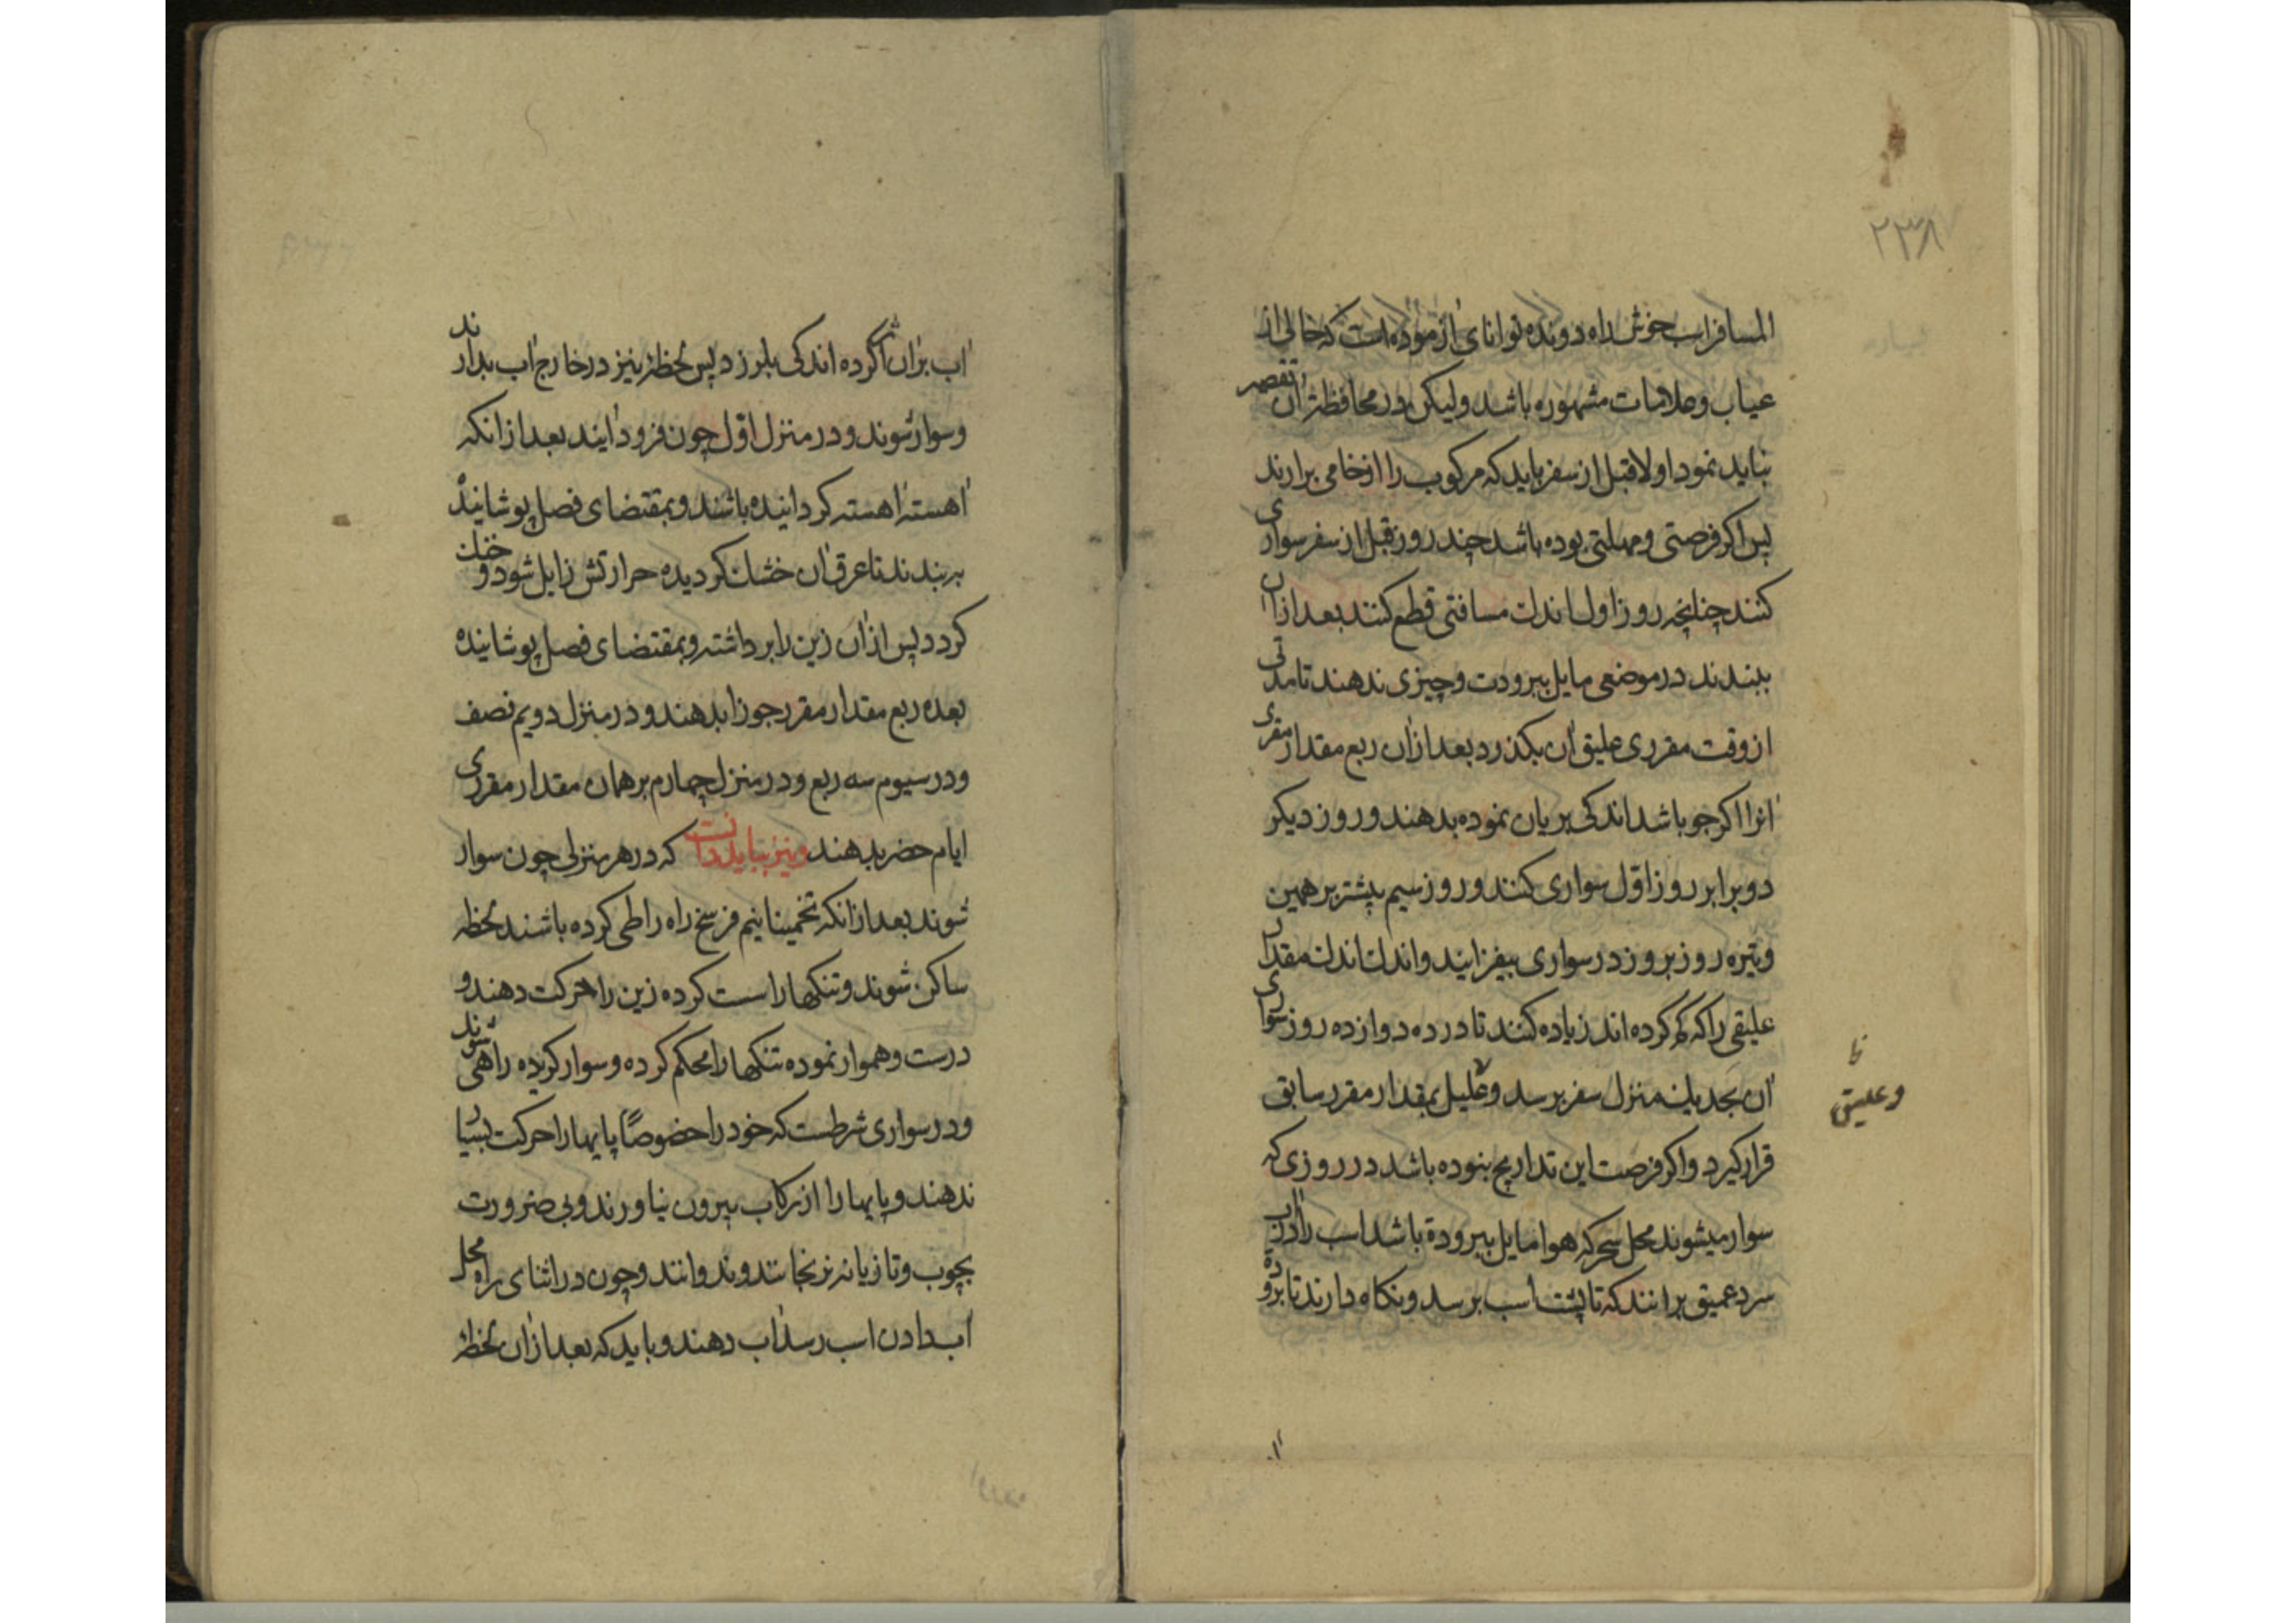 ۲۳۸
المسافر اسب خوش راه دونده توانای ازموده است که خالی از
عیاب و علامات مشهوره باشد ولیکن در محافظة آن تقصیر
نباید نمود اولا قبل از سفر باید که مرکوب را از خامی برارند
پس اکر فرصتی و مهلتی بوده باشد چند روز قبل از سفر سواری
کنند چنانچه روز اول اندک مسافتی قطع کنند بعد ازان
ببندند در موضعی مایل ببرودت و چیزی ندهند تا مدتی
از وقت مقرری علیق آن بکذرد بعد ازان ربع مقدار مقرری
انرا اکر جو باشد اندکی بریان نموده بدهند و روز دیکر
دو برابر روز اوّل سواری کنند و روز سیم بیشتر بر همین
وتیره روز بروز در سواری بیفزایند و اندک اندک مقدار
علیقی را که کم کرده اند زیاده کنند تا در ده دوازده روز سواری
آن بحد یک منزل سفر برسد و علیل بمقدار مقرر سابق
وعلیق
قرار کیرد و اکر فرصت این تداریج نبوده باشد در روزی که
سوار میشوند محل سحر که هوا مایل ببرودة باشد اسب را در آب
سرد عمیق برانند که تا پشت اسب برسد و نکاه دارند تا برودة
اب بران اثر کرده اندکی بلرزد پس لحظهٔ نیز در خارج اب بدارند
و سوار شوند و در منزل اوّل چون فرود آیند بعد از انکه
اهسته اهسته کردانیده باشند و بمقتضای فصل پوشانیده
بربندند تا عرق آن خشک کردیده حرارتش زایل شود و خنک
کردد پس ازان زین را برداشته و بمقتضای فصل پوشانیده
بعده ربع مقدار مقرر جو را بدهند و در منزل دویم نصف
و در سیوم سه ربع و در منزل چهارم بر همان مقدار مقرری
ایام حضر بدهند و نیز بباید دانست که در هر منزلی چون سوار
شوند بعد ازانکه تخمینا نیم فرسخ راه را طی کرده باشند لحظه
ساکن شوند و تنکها راست کرده زین را حرکت دهند و
درست و هموار نموده تنکها را محکم کرده و سوار کردیده راهی شوند
و در سواری شرطست که خود را خصوصًا پایها را حرکت بسیار
ندهند و پایها را از رکاب بیرون نیاورند و بی ضرورت
بچوب و تازیانه نرنجانند و ندوانند و چون در اثنای راه محل
آب دادن اسب رسد آب دهند و باید که بعد ازان لحظهٔ